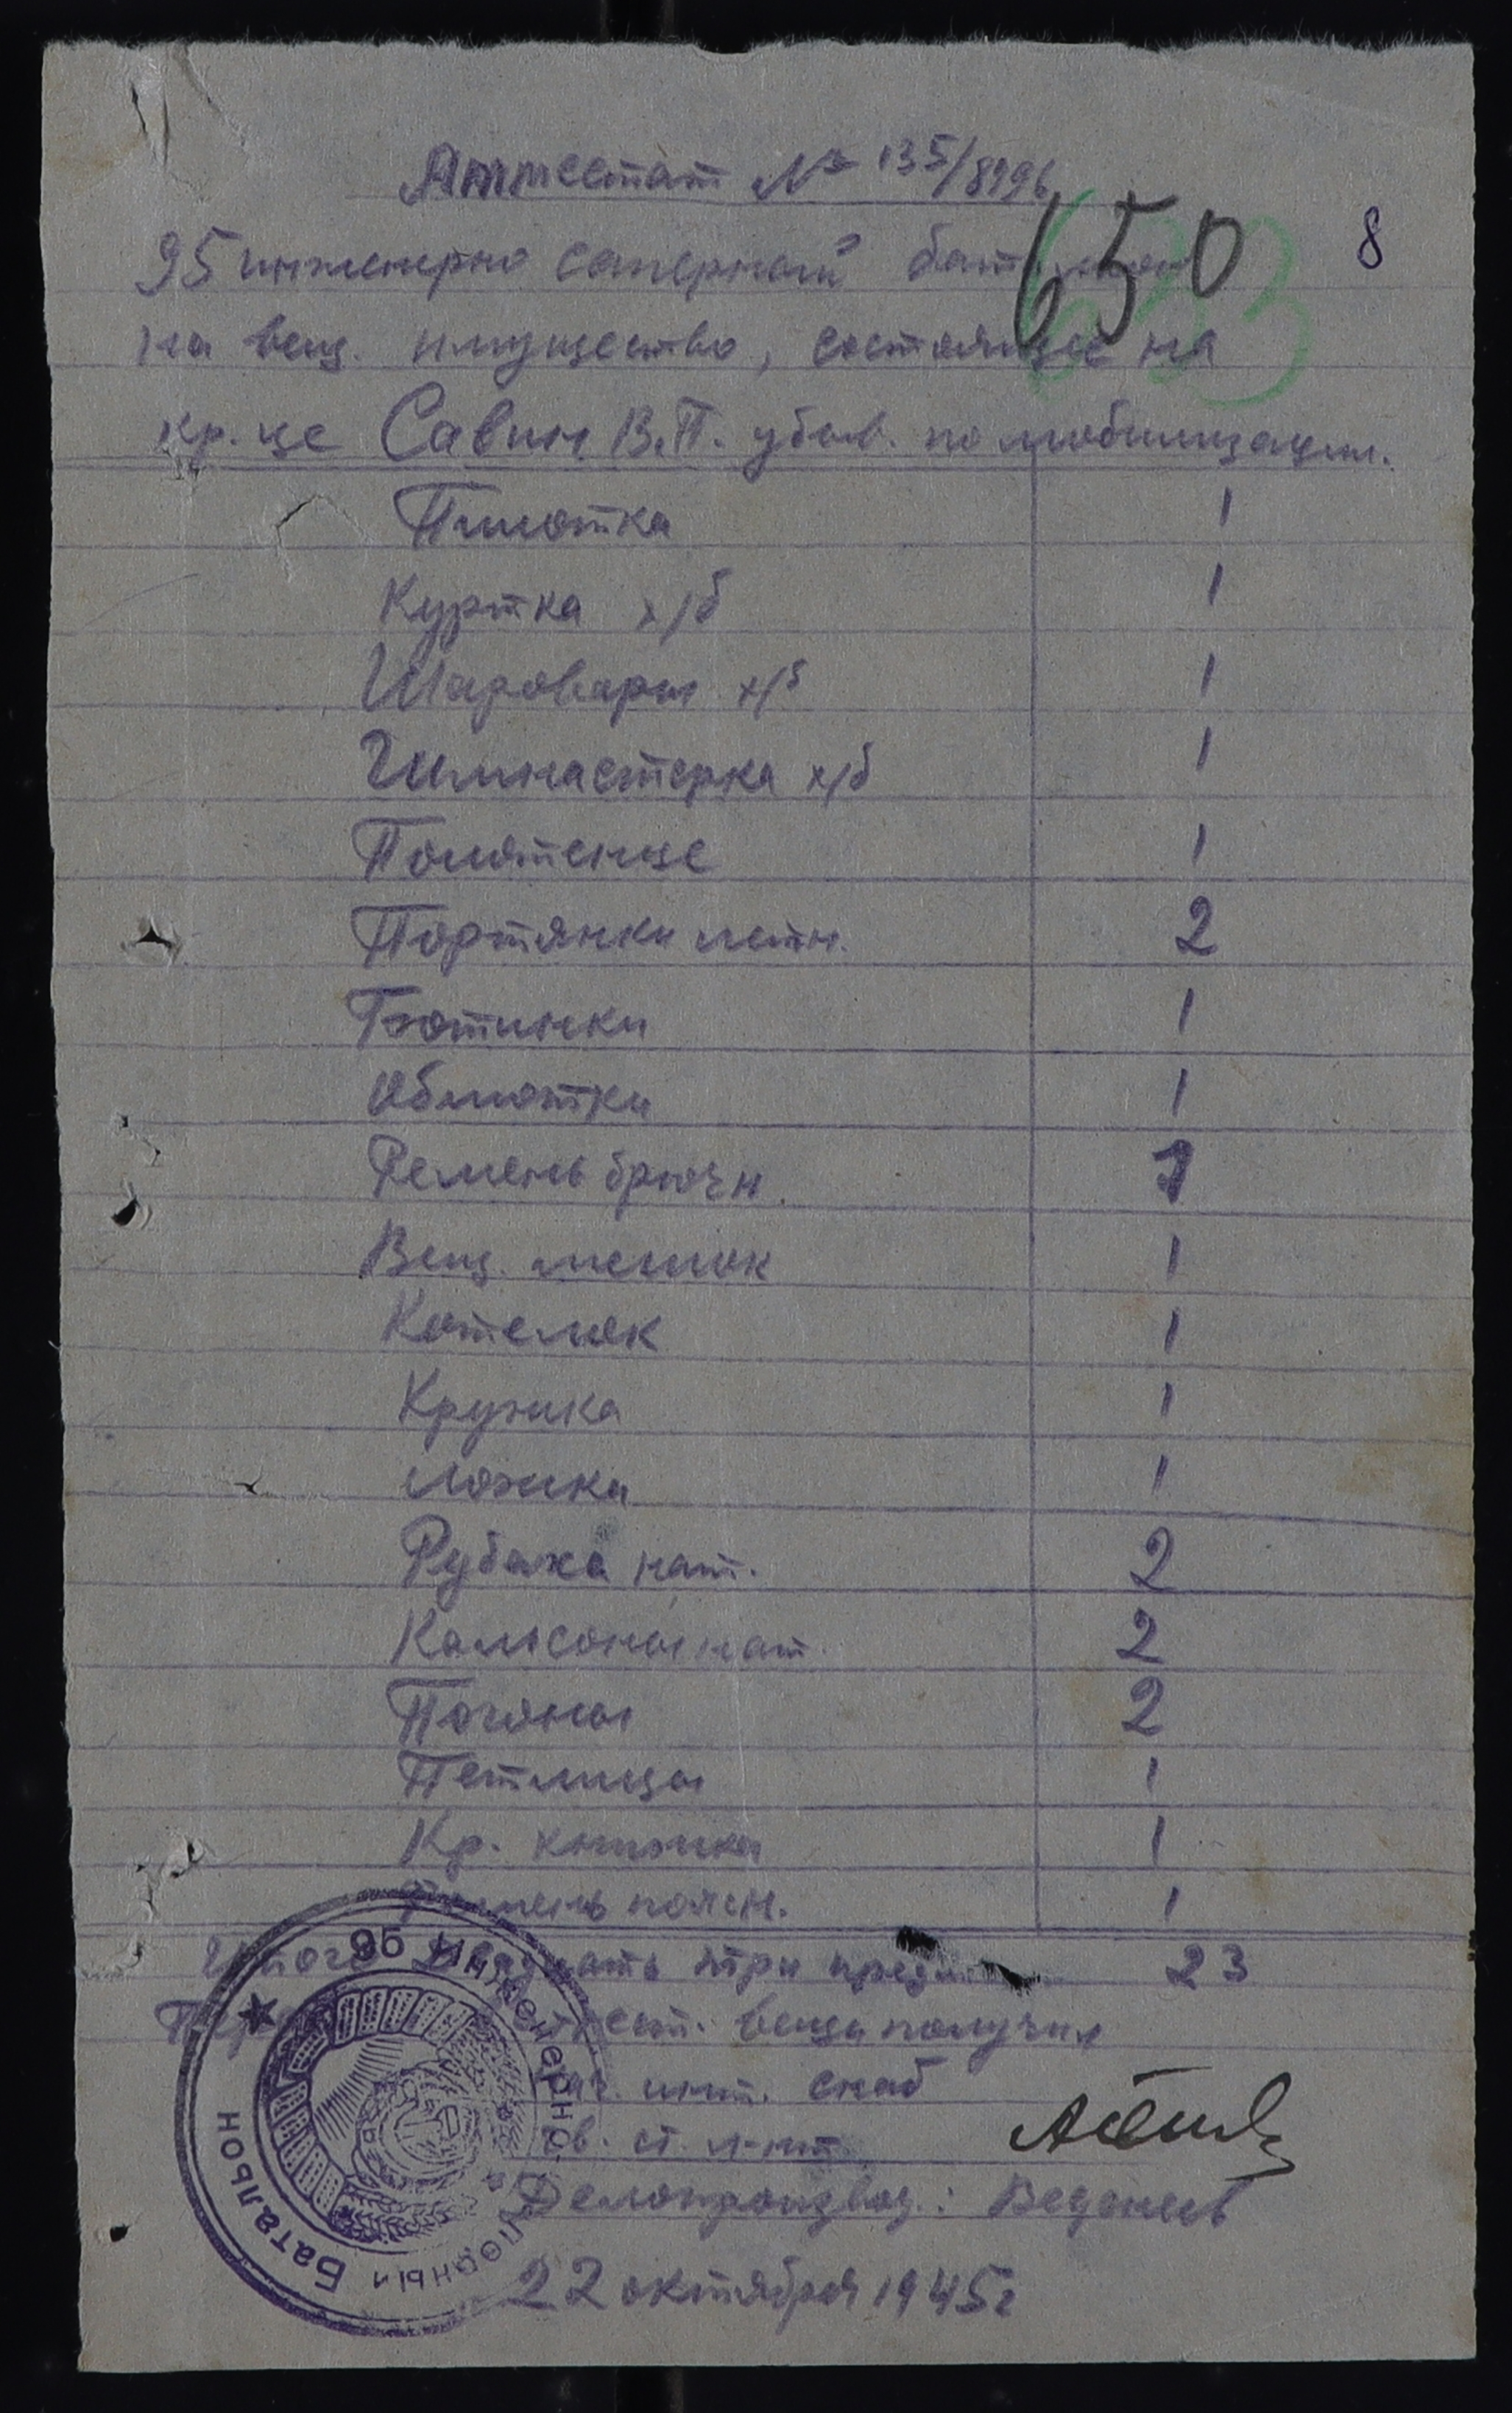 Аттестат № 135/8996
650
8
95 инженерно саперный батальон
на вещ. имущество, состоящее на
кр-це Савин В.П. убыв. по мобилизации.
Пилотка 1
Куртка х/б 1
Шаровары х/б 1
Гимнастерка х/б 1
Полотенце 1
Портянки летн. 2
Ботинки 1
Обмотки 1
Ремень брючн. 1
Вещ. мешок 1
Котелок 1
Кружка 1
Ложка 1
Рубаха нат. 2
Кальсоны нат. 2
Погоны 2
Петлицы 1
Кр. книжка 1
Ремень поясн. 1
Итого двадцать три предм 23
вещи получил
нач. инт. снаб
гв. ст. л-нт
Делопроизвод.: Веденеев
22 октября 1945г
95 Инженерно Саперный Батальон